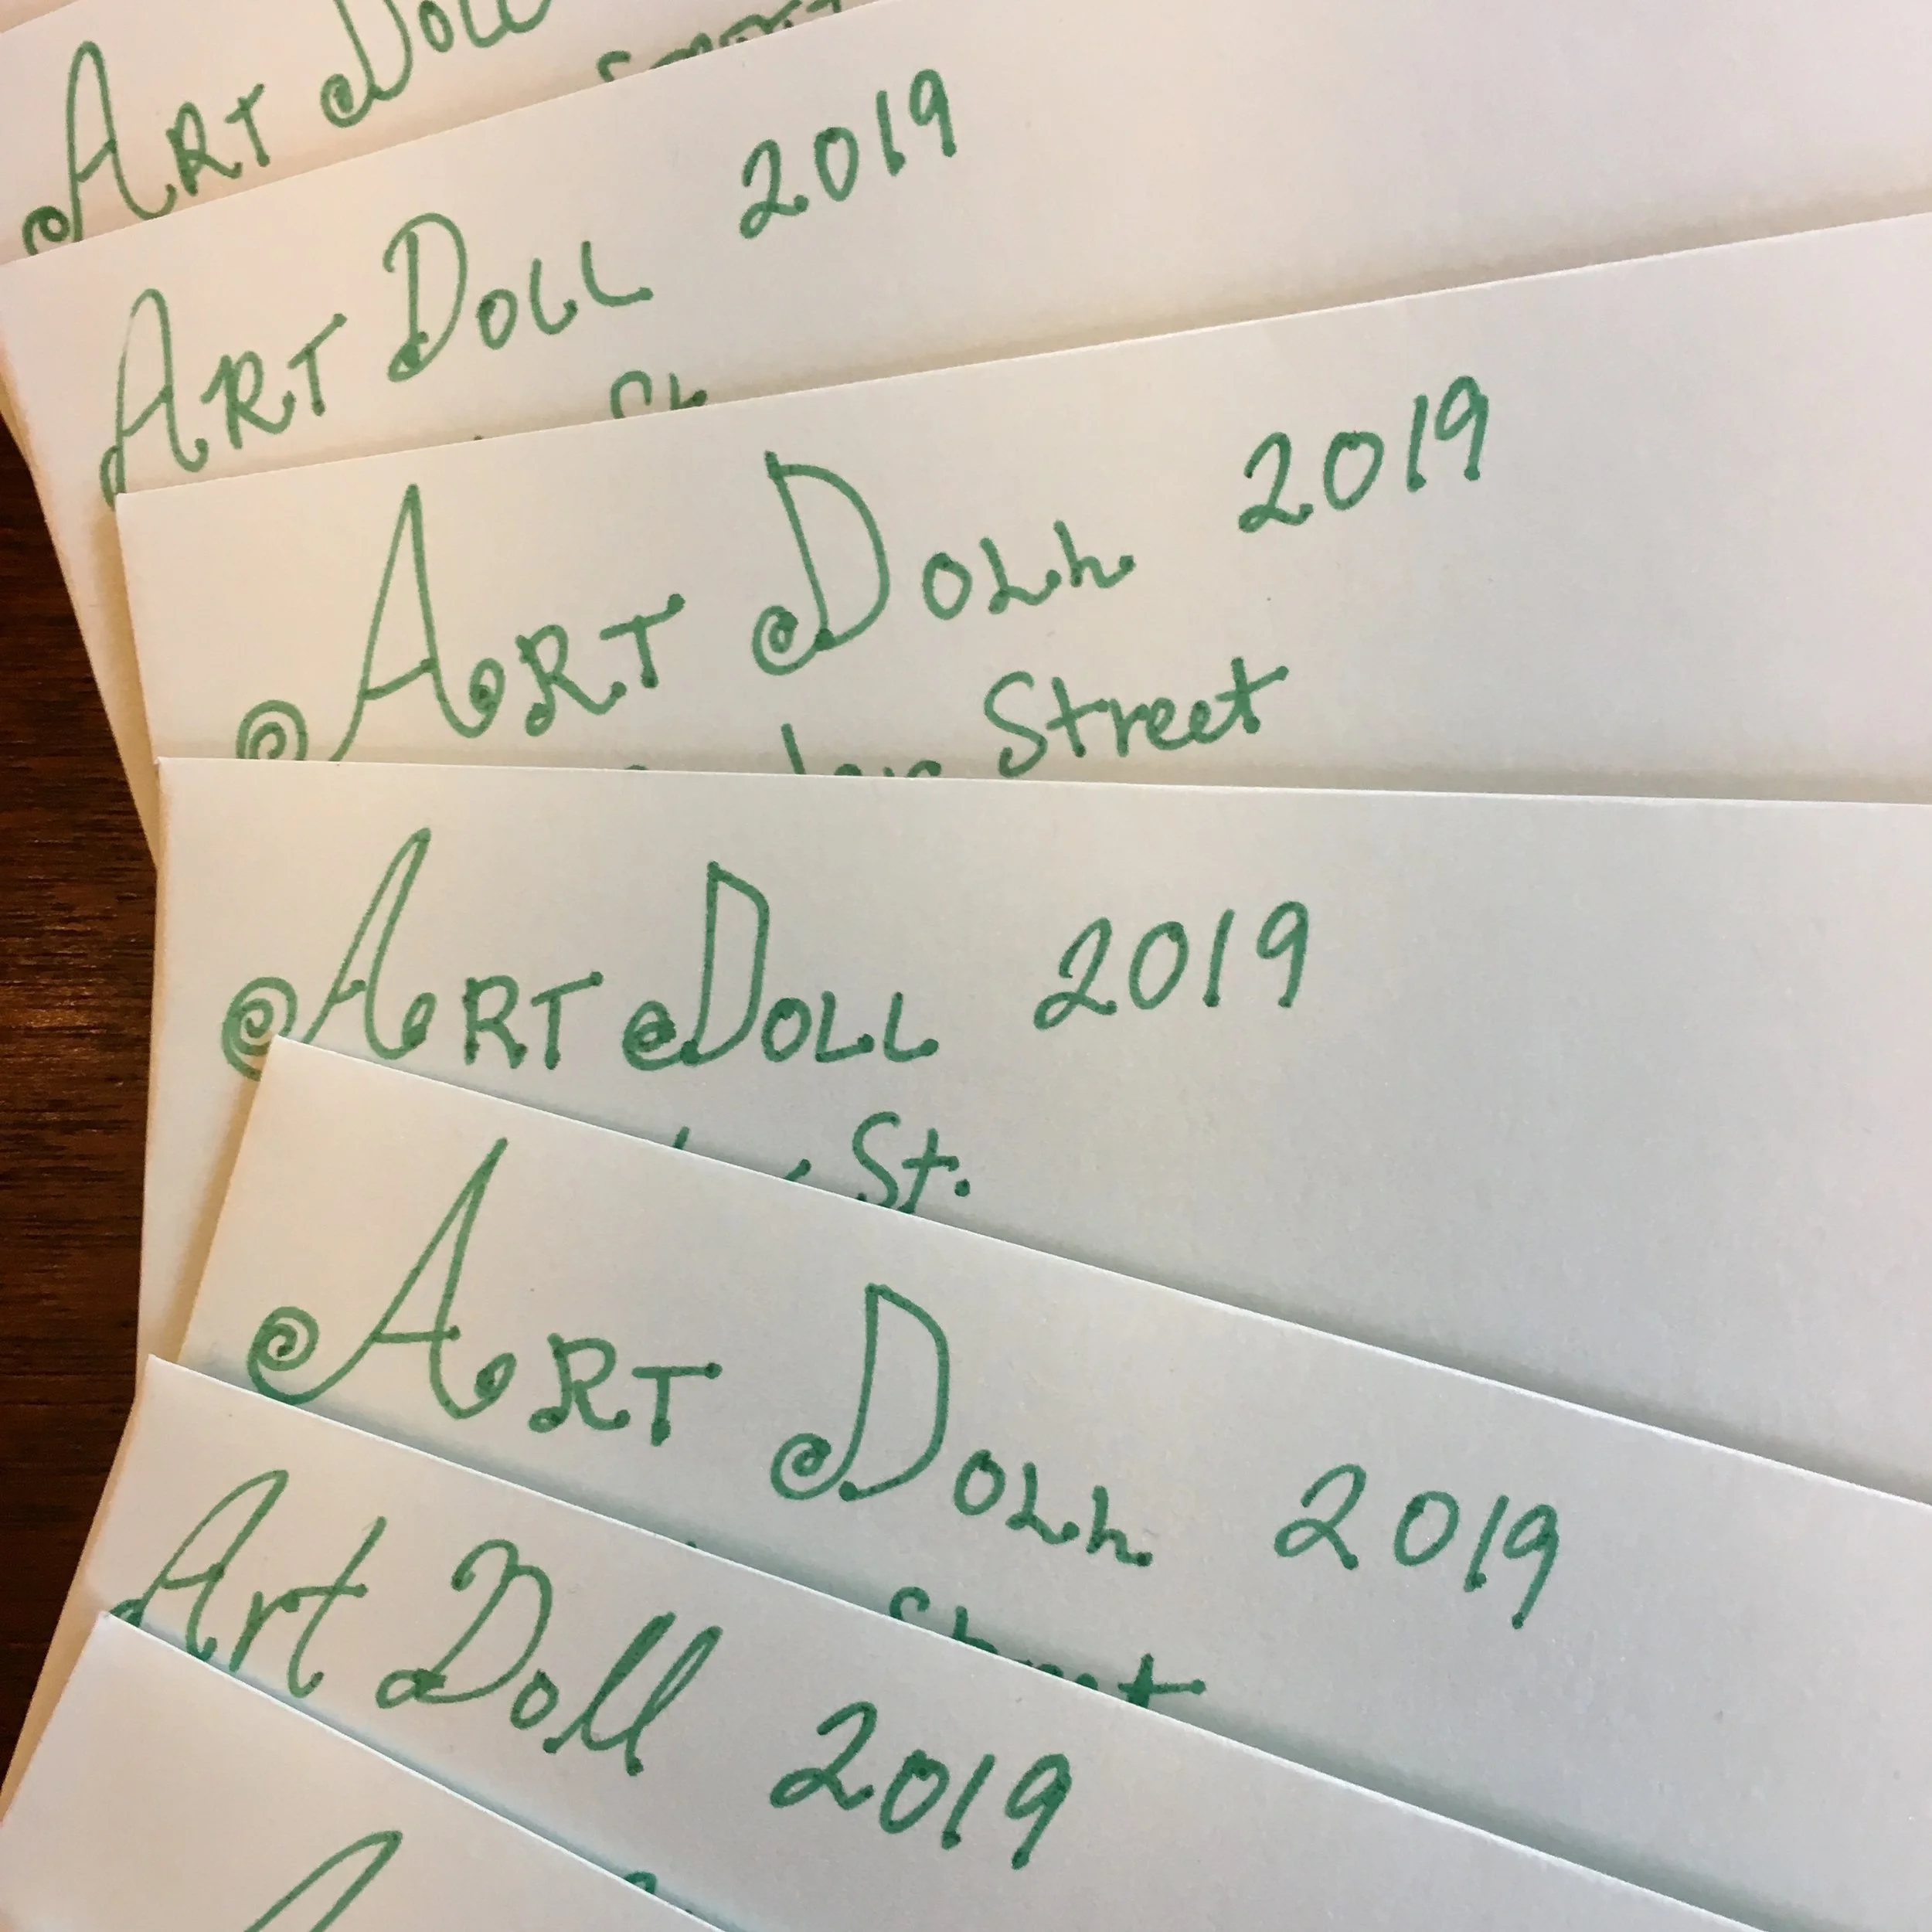 ART DOLL
ART DOLL 2019
ART DOLL 2019
Street
ART DOLL 2019
St.
ART DOLL 2019
Street
Art Doll 2019